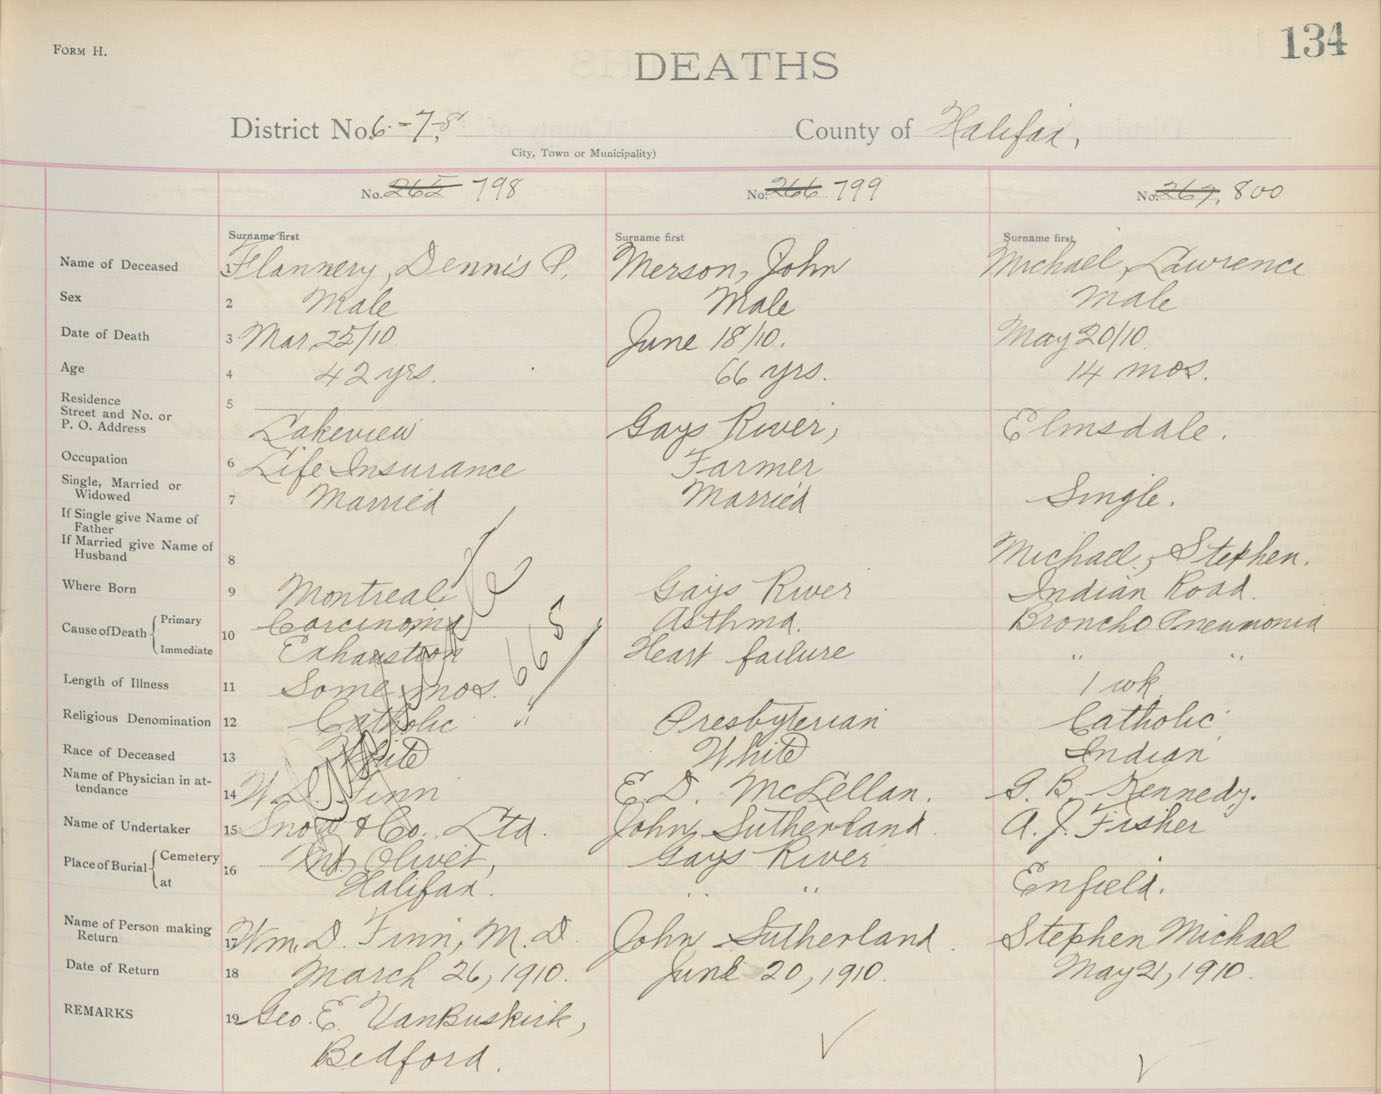 FORM H.
134
DEATHS
District No. 6-7,8 County of Halifax,
City, Town or Municipality)
No. 265 798 No. 266 799 No. 267, 800
Surname first Surname first Surname first
Name of Deceased 1 Flannery, Dennis P. Merson, John Michael, Lawrence
Sex 2 Male Male Male
Date of Death 3 Mar 25/10 June 18/10. May 20/10.
Age 4 42 yrs. 66 yrs. 14 mos.
Residence
Street and No. or 5
P. O. Address Lakeview Gays River, Elmsdale.
Occupation 6 Life Insurance Farmer
Single, Married or
Widowed 7 Married Married Single.
If Single give Name of
Father
If Married give Name of
Husband 8 Michael, Stephen.
Where Born 9 Montreal Gays River Indian Road.
Cause of Death Primary 10 Carcinoma Asthma. Broncho Pneumonia
Immediate Exhaustion Heart failure " "
Length of Illness 11 Some mos. 1 wk
Religious Denomination 12 Catholic Presbyterian Catholic
Race of Deceased 13 White White Indian
Name of Physician in at-
tendance 14 W. D. Finn E. D. McLellan. G. B. Kennedy.
Name of Undertaker 15 Snow & Co. Ltd. John Sutherland. A. J. Fisher
Place of Burial Cemetery 16 Mt. Olivet, Gays River
at Halifax. " " Enfield.
Name of Person making
Return 17 Wm. D. Finn, M.D. John Sutherland. Stephen Michael
Date of Return 18 March 26, 1910. June 20, 1910. May 21, 1910.
REMARKS 19 Geo. E. VanBuskirk,
Bedford.
665